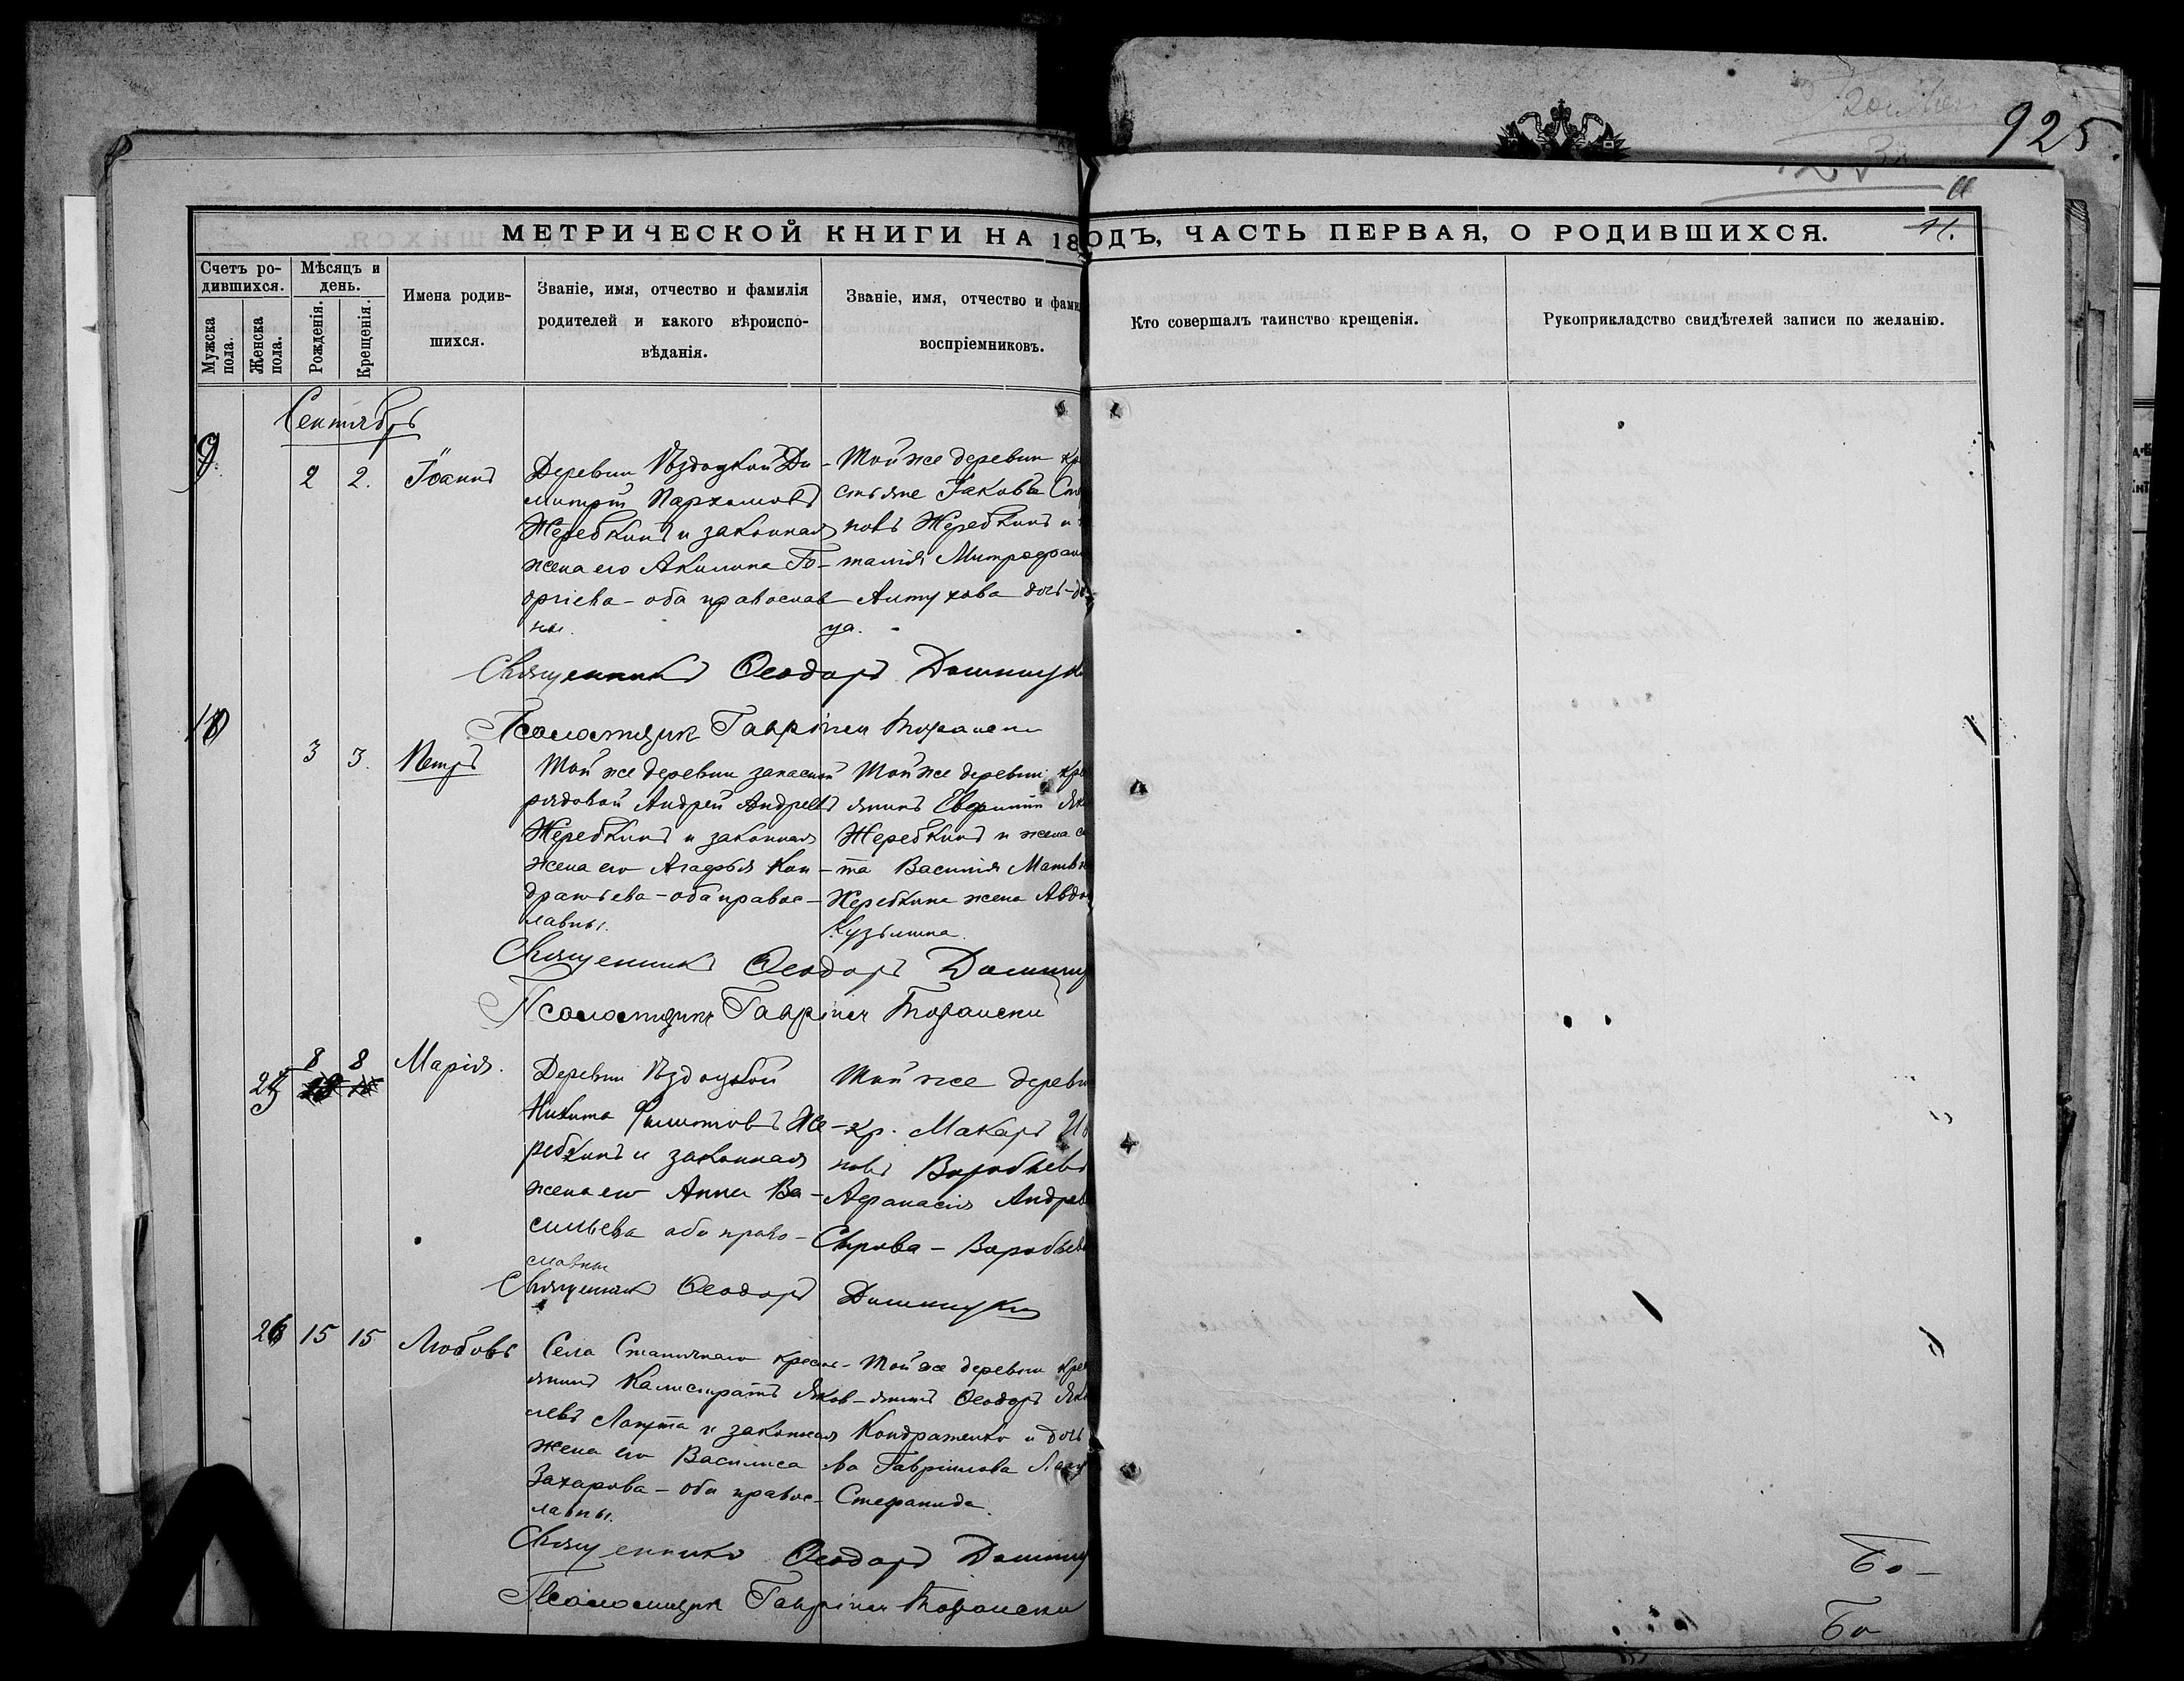 925.
11
11.
МЕТРИЧЕСКОЙ КНИГИ НА 18
ОДЪ, ЧАСТЬ ПЕРВАЯ, О РОДИВШИХСЯ.
Счетъ ро-
дившихся.
Мужска
пола.
Женска
пола.
Мѣсяцъ и
день.
Рожденія.
Крещенія.
Имена родив-
шихся.
Званіе, имя, отчество и фамилія
родителей и какого вѣроиспо-
вѣданія.
Званіе, имя, отчество и фами
воспріемниковъ.
Кто совершалъ таинство крещенія.
Рукоприкладство свидѣтелей записи по желанію.
Сентябрь
9
2 2.
Іоаннъ
Деревни Ѣздоцкой Ди-
митрій Пархомовъ
Жеребкинъ и законная
жена его Акилина Ге-
оргіева - оба православ
ны.
Той же деревни кр
стьяне Іаковъ Ст
новъ Жеребкинъ и
талія Митрофан
Алтухова дочь-д
ца.
Священникъ Ѳеодоръ
Псаломщик Гавріил
10
3 3.
Петръ
Той же деревни запасной
рядовой Андрей Андреевъ
Жеребкинъ и законная
жена его Агафья Кон-
дратьева - оба правос-
лавны.
Той же деревни кре
янинъ Евфимій Як
Жеребкинъ и жена с
та Василія Матвѣ
Жеребкина жена Авдо
Кузьмина.
Священникъ Ѳеодоръ
Псаломщикъ Гавріил
25
8 8
Марія.
Деревни Ѣздоцкой
Никита Филиповъ Же-
ребкинъ и законная
жена его Анна Ва-
сильева оба право-
славны
Той же деревн
кр. Макаръ Ив
новъ Воробьевъ
Афанасія Андрее
Сырова - Воробьев
Священникъ Ѳеодоръ
26 15 15
Любовь
Села Станичнаго кресть-
янинъ Калистратъ Яков-
левъ Лапта и законная
жена его Василиса
Захарова - оба правос-
лавны.
Той же деревни кре
янинъ Ѳеодоръ Як
Кондратенко и дочь
ва Гавріилова
Стефанида.
Священникъ Ѳеодоръ
Псаломщик Гавріил
Бо-
Бо